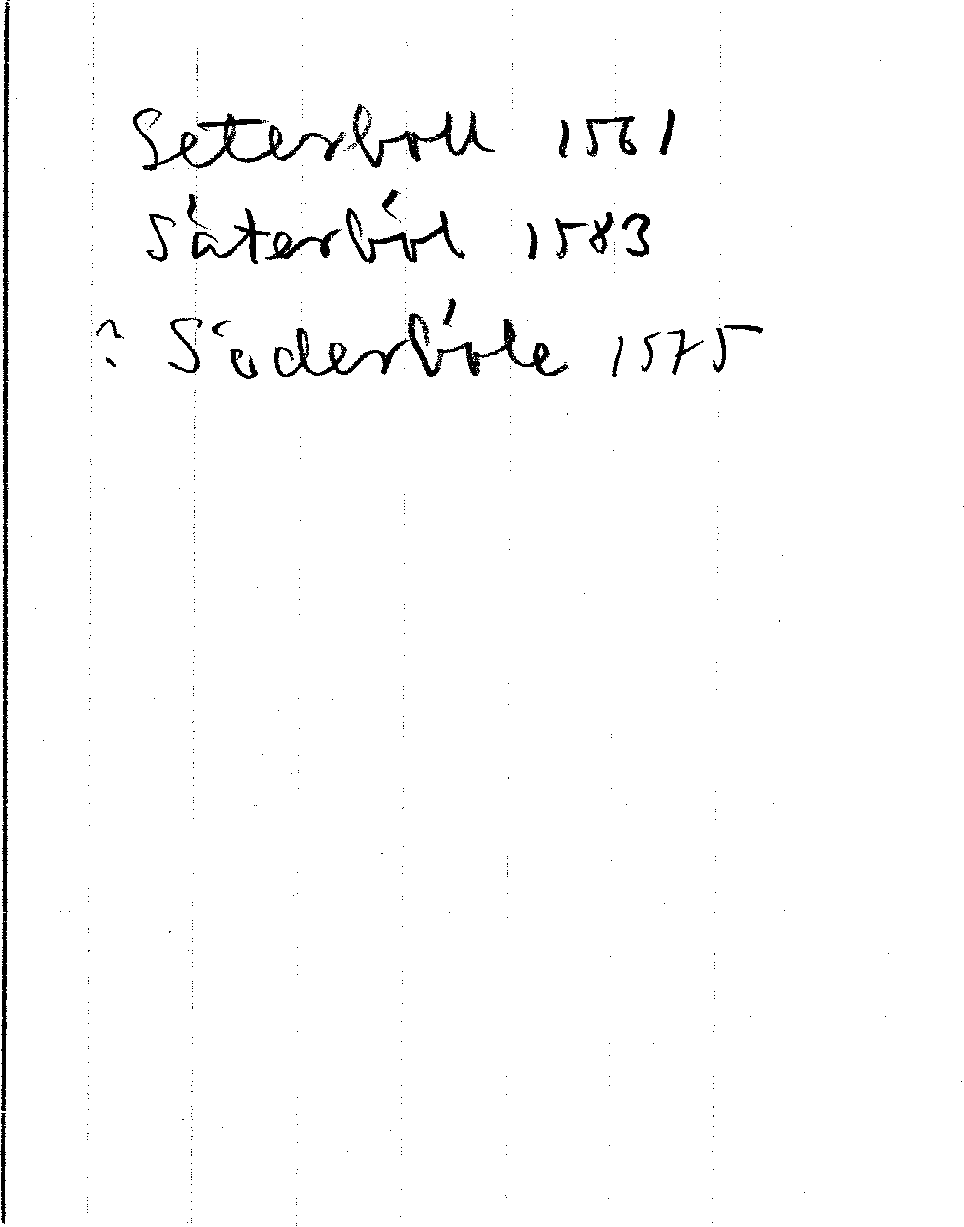 Seterboll 1561
Säterböl 1583
? Söderböle 1575